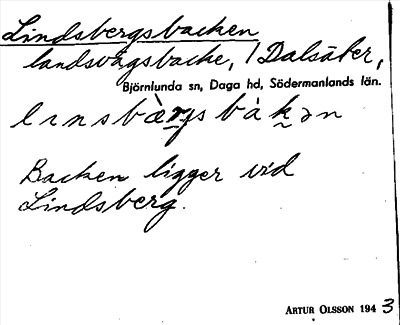 Lindsbergsbacken
landsvägsbacke, / Dalsäter,
Björnlunda sn, Daga hd, Södermanlands län.
Backen ligger vid
Lindsberg.
ARTUR OLSSON 1943